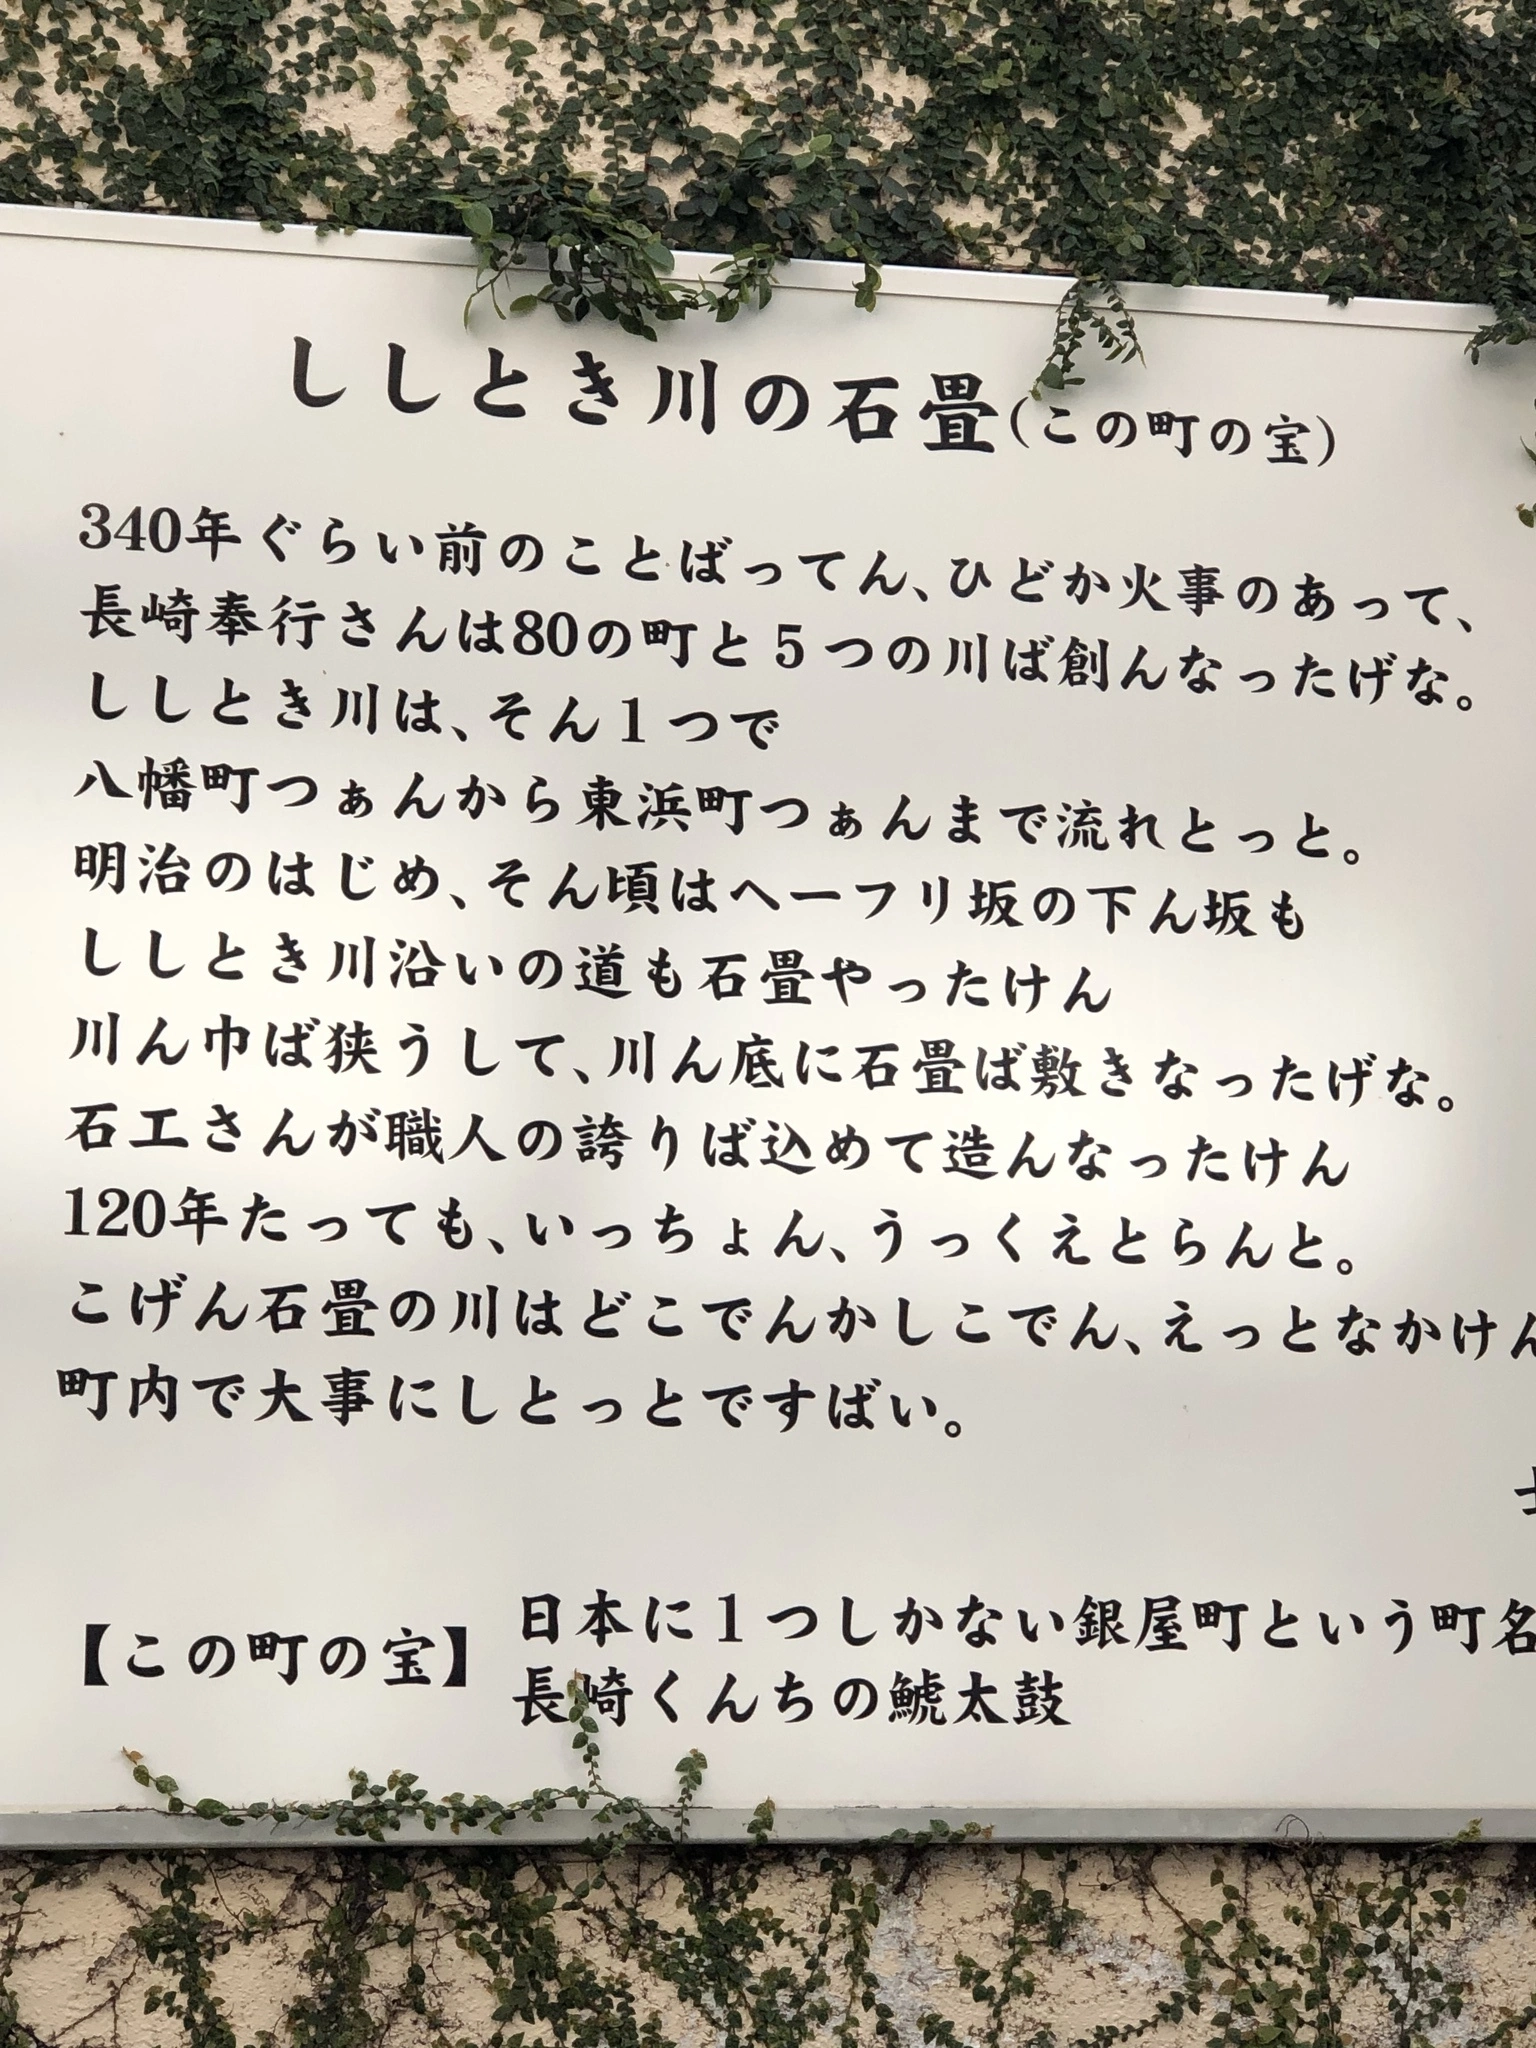 ししとき川の石畳(この町の宝)
340年ぐらい前のことばってん、ひどか火事のあって、
長崎奉行さんは80の町と５つの川ば創んなったげな。
ししとき川は、そん１つで
八幡町つぁんから東浜町つぁんまで流れとっと。
明治のはじめ、そん頃はヘーフリ坂の下ん坂も
ししとき川沿いの道も石畳やったけん
川ん巾ば狭うして、川ん底に石畳ば敷きなったげな。
石工さんが職人の誇りば込めて造んなったけん
120年たっても、いっちょん、うっくえとらんと。
こげん石畳の川はどこでんかしこでん、えっとなかけん
町内で大事にしとっとですばい。
【この町の宝】
日本に１つしかない銀屋町という町名
長崎くんちの鯱太鼓